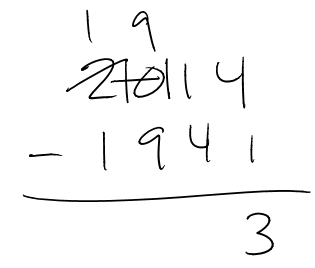 1 9
2 10 11 4
- 1 9 4 1
3